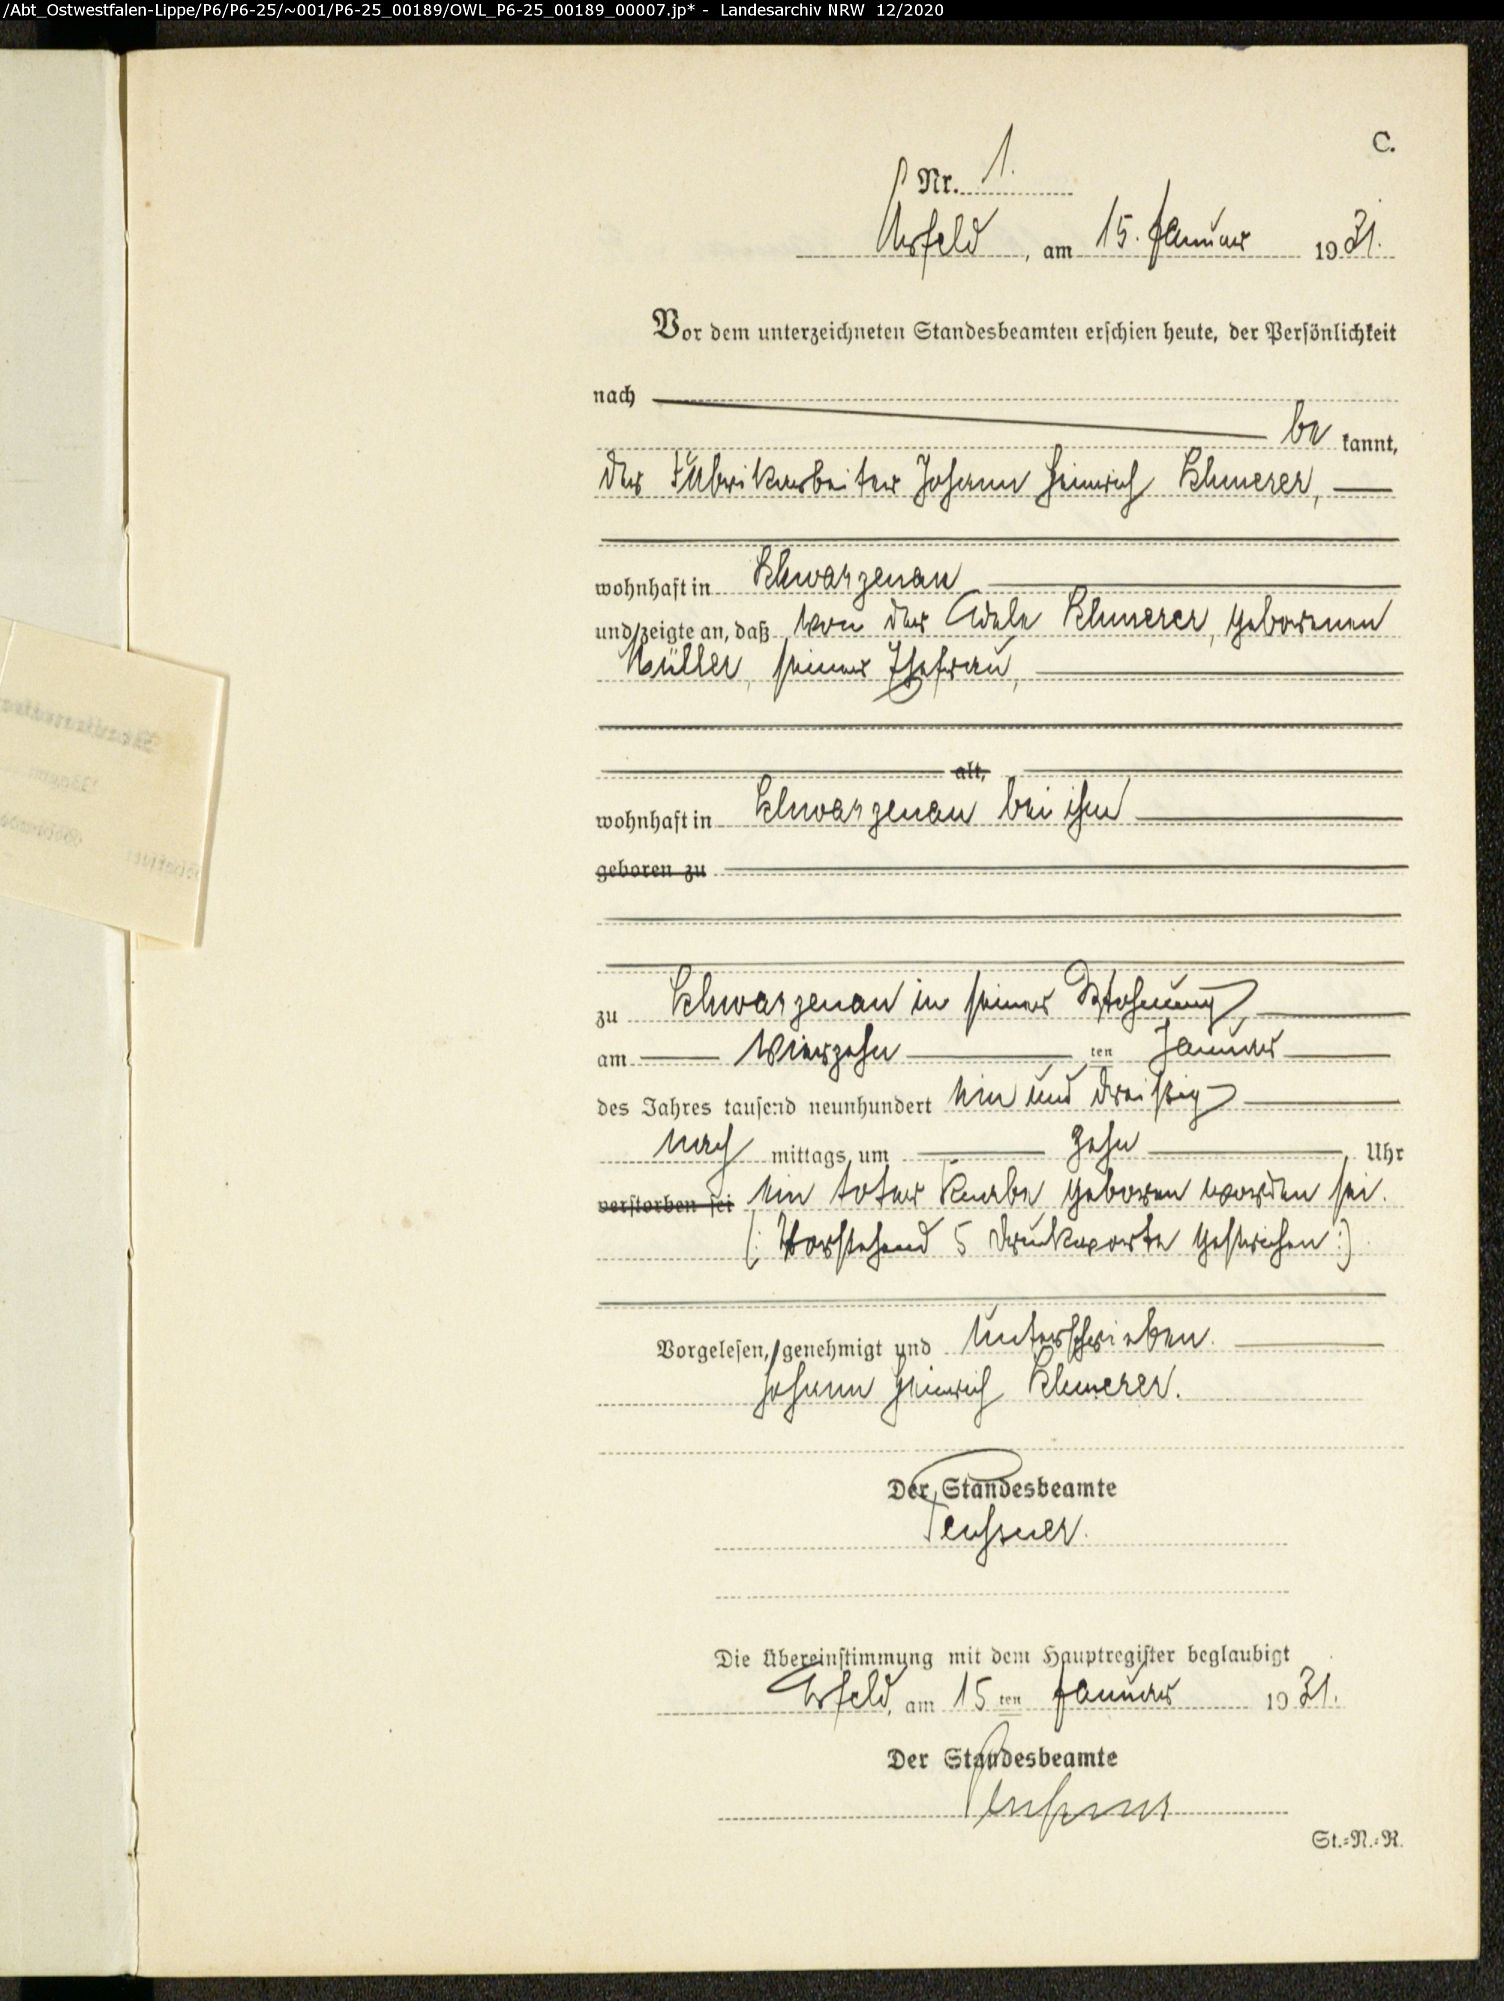 /Abt_Ostwestfalen-Lippe/P6/P6-25/~001/P6-25_00189/OWL_P6-25_00189_00007.jp* - Landesarchiv NRW 12/2020
C.
Nr. 1.
Arfeld, am 15. Januar 1931.
Vor dem unterzeichneten Standesbeamten erschien heute, der Persönlichkeit
nach
be kannt,
der Fabrikarbeiter Johann Heinrich
wohnhaft in Schwarzenau
und zeigte an, daß von der Adele geborenen
Müller, seiner Ehefrau,
alt,
wohnhaft in Schwarzenau bei ihm
geboren zu
zu Schwarzenau in seiner Wohnung
am vierzehn ten Januar
des Jahres tausend neunhundert ein und dreißig
nach mittags um zehn Uhr
verstorben sei ein toter Knabe geboren worden sei.
(: Vorstehend 5 Druckworte gestrichen :)
Vorgelesen, genehmigt und unterschrieben.
Johann Heinrich
Der Standesbeamte
Die Übereinstimmung mit dem Hauptregister beglaubigt
Arfeld, am 15 ten Januar 1931.
Der Standesbeamte
St.=N.=R.